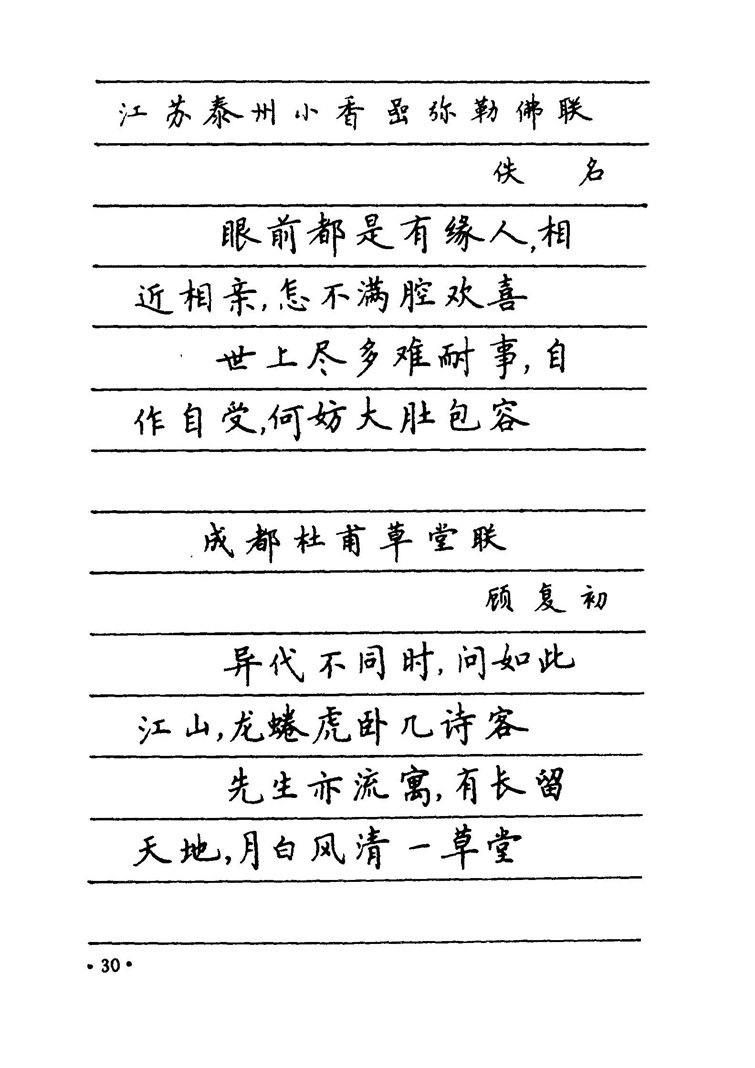 江苏泰州小香喦弥勒佛联
佚 名
眼前都是有缘人,相
近相亲,怎不满腔欢喜
世上尽多难耐事,自
作自受,何妨大肚包容
成都杜甫草堂联
顾复初
异代不同时,问如此
江山,龙蜷虎卧几诗客
先生亦流寓,有长留
天地,月白风清一草堂
·30·